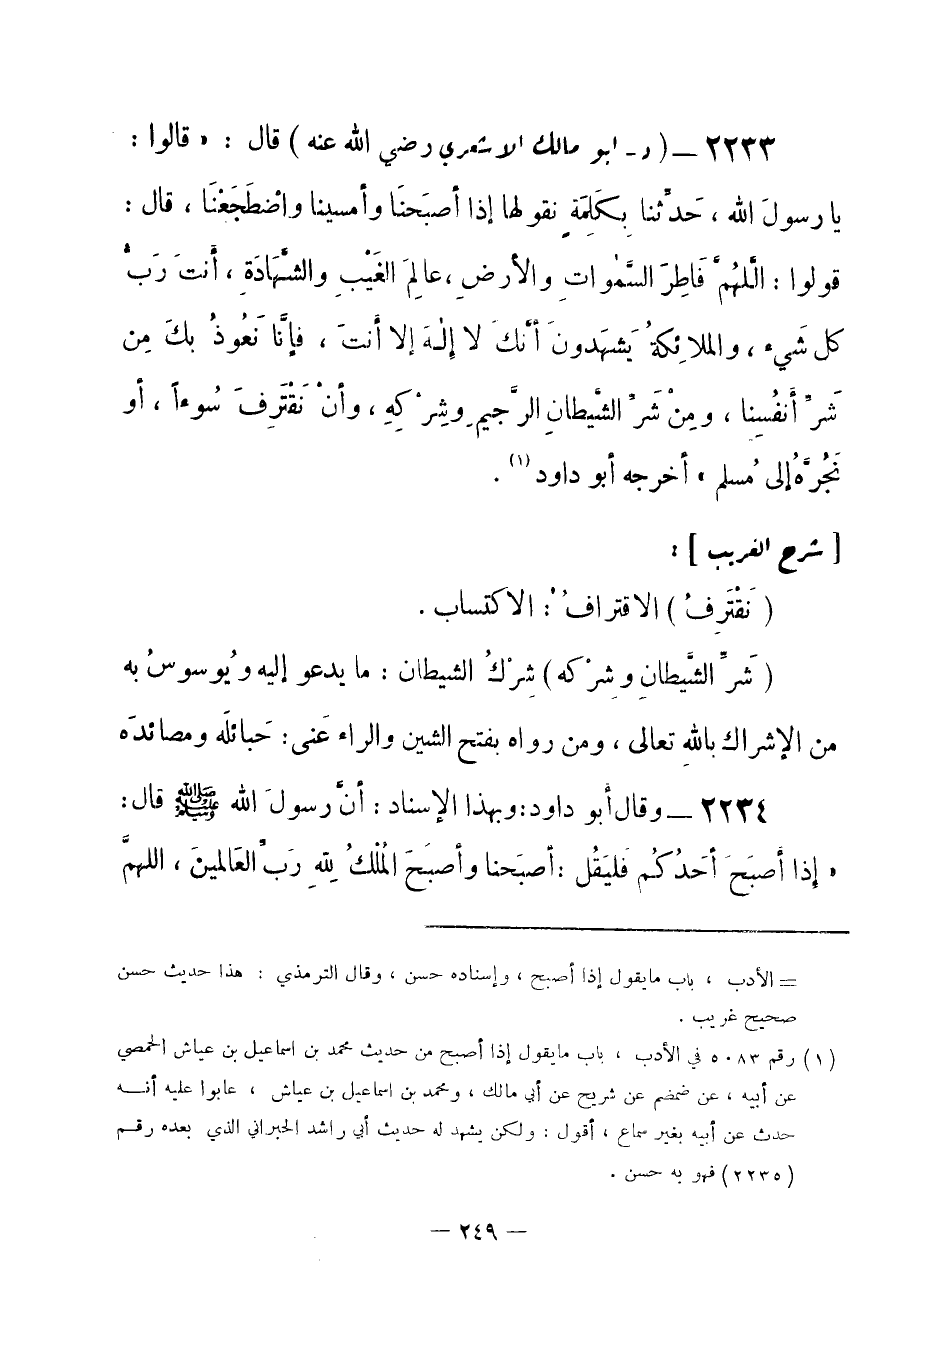 ٢٢٣٣ ـ ( د ـ ابو مالك الاشعري رضي الله عنه ) قال : « قالوا :
يا رسولَ الله ، حَدِّثنا بِكَلِمَةٍ نقولها إذا أصبَحنَا وأمسينا واضْطَجَعْنَا ، قال :
قولوا : اللَّهُمَّ فَاطِرَ السَّمٰواتِ والأرضِ ، عالِمَ الغَيْبِ والشَّهَادَةِ ، أنتَ رَبُّ
كل شَيءٍ ، والملائِكةُ يَشهَدونَ أنَّكَ لا إِلٰهَ إلا أنتَ ، فإنَّا نَعُوذُ بكَ مِن
شَرِّ أَنفُسِنا ، ومِنْ شَرِّ الشَّيطانِ الرَّجيمِ وشِرْكِهِ ، وأنْ نَقْتَرِفَ سُوءاً ، أو
نَجُرَّهُ إلى مُسلم » أخرجه أبو داود (١) .
[ شرح الغريب ] :
( نَقْتَرِفُ ) الاقترافُ : الاكتساب .
( شَرِّ الشَّيطانِ وشِرْكه ) شِرْكُ الشيطان : ما يدعو إليه ويُوسوسُ به
من الإشراك باللهِ تعالى ، ومن رواه بفتح الشين والراء عَنى : حَبائلَه ومصائدَه
٢٢٣٤ ـ وقال أبو داود : وبهذا الإسناد : أنَّ رسولَ الله ﷺ قال :
« إذا أصبَحَ أحَدُكُم فَليَقُل : أصبَحنا وأصبَحَ المُلْكُ لِلّهِ رَبِّ العَالمينَ ، اللهمَّ
= الأدب ، باب مايقول إذا أصبح ، وإسناده حسن ، وقال الترمذي : هذا حديث حسن
صحيح غريب .
(١) رقم ٥٠٨٣ في الأدب ، باب مايقول إذا أصبح من حديث محمد بن اسماعيل بن عياش الحمصي
عن أبيه ، عن ضمضم عن شريح عن أبي مالك ، ومحمد بن اسماعيل بن عياش ، عابوا عليه أنه
حدث عن أبيه بغير سماع ، أقول : ولكن يشهد له حديث أبي راشد الحبراني الذي بعده رقم
(٢٢٣٥) فهو به حسن .
— ٢٤٩ —